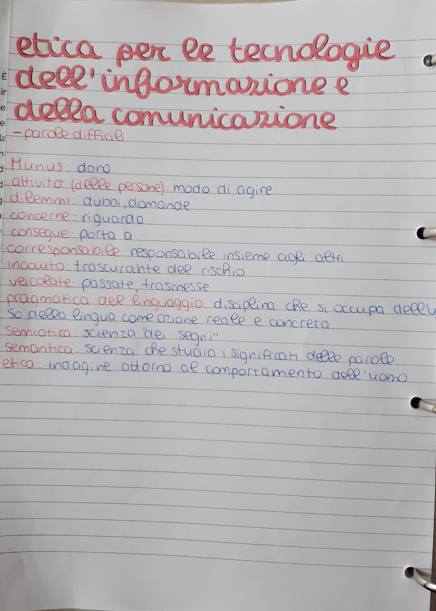 etica per le tecnologie
dell'informazione e
della comunicazione
- parole difficili
Munus: dono
attività (delle persone): modo di agire
dilemmi: dubbi, domande
concerne: riguarda
consegue: porta a
corresponsabile: responsabile insieme agli altri
incauto: trascurante del rischio
veicolate: passate, trasmesse
pragmatica del linguaggio: disciplina che si occupa dell'u
so della lingua come azione reale e concreta
semiotica: scienza "dei segni"
semantica: scienza che studia i significati delle parole
etica: indagine attorno al comportamento dell'uomo